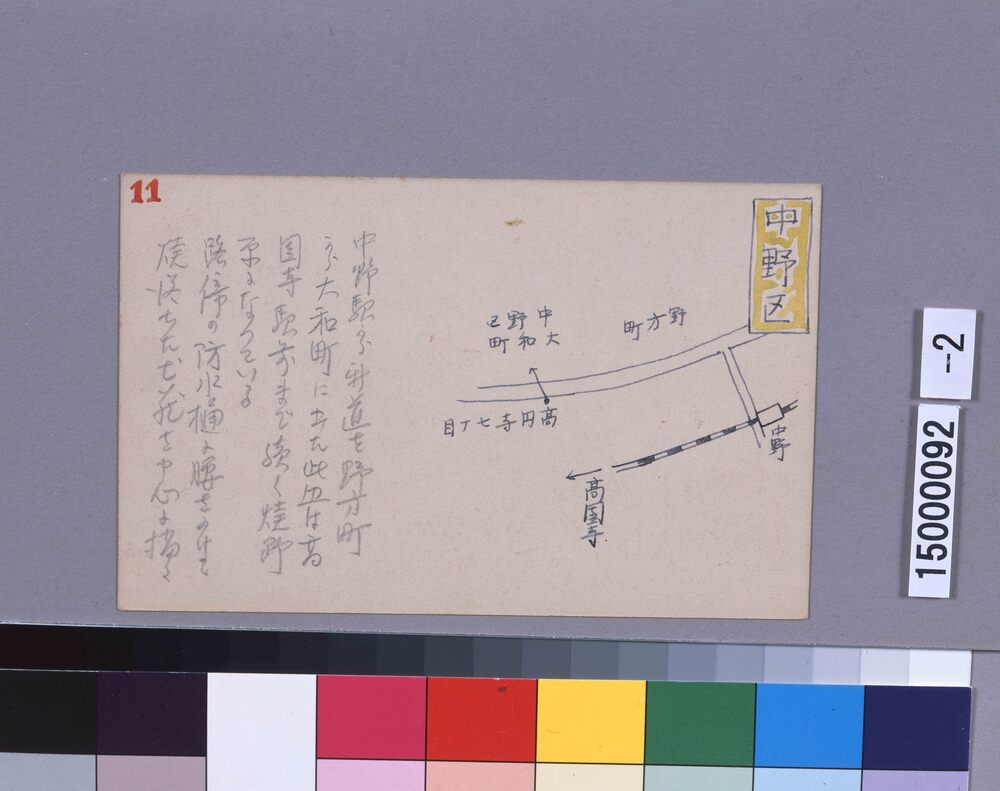 11
中野区
中野駅から新道を野方町
から大和町に出た此辺は高
円寺駅前まで続く焼野
原になつている
路傍の防水桶に腰をのせ
焼落ちた土蔵を中心に描く
野方町
中野
大和町
高円寺七丁目
中野
高圓寺
-2
15000092